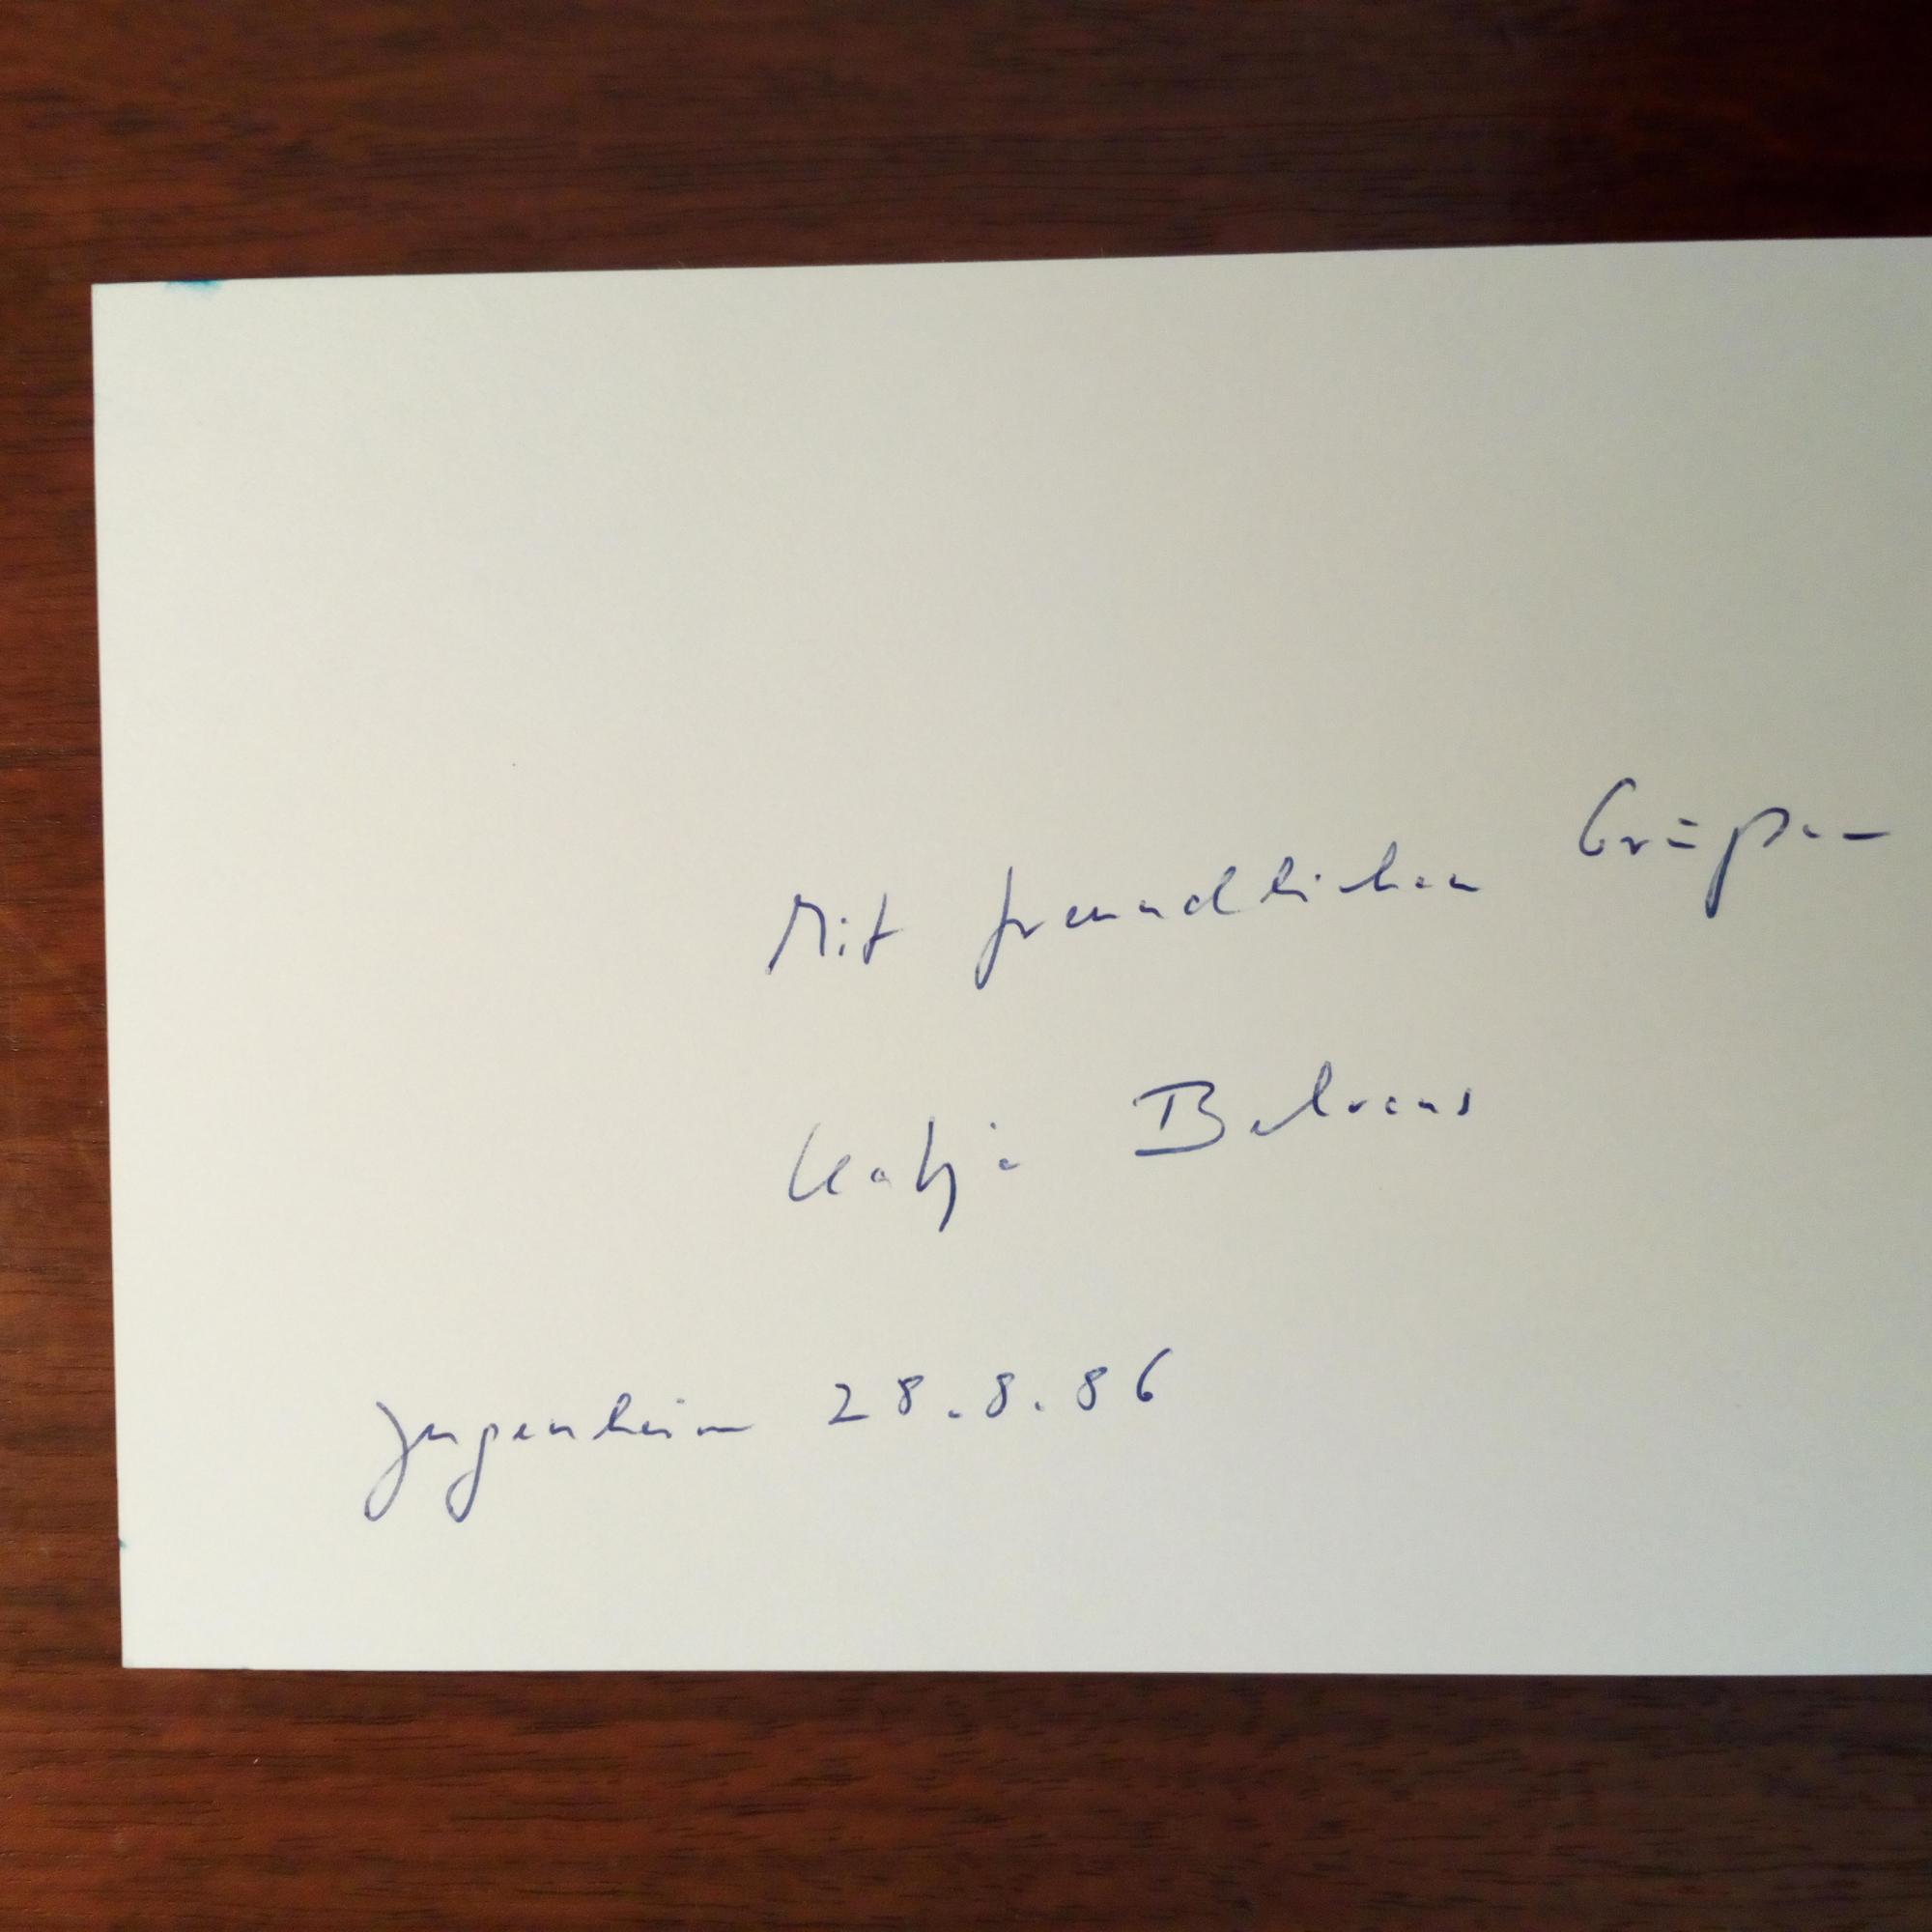 Mit freundlichen Grüßen
Katja Behrens
Jugenheim 28.8.86